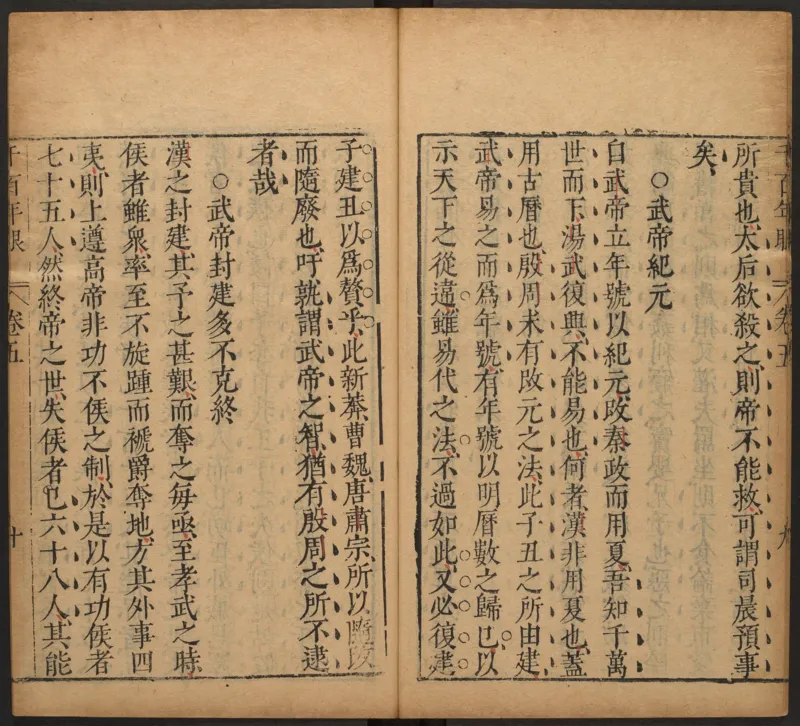 所貴也太后欲殺之則帝不能救可謂司晨預事
矣
○武帝紀元
自武帝立年號以紀元改秦政而用夏吾知千萬
世而下湯武復興不能易也何者漢非用夏也蓋
用古曆也殷周未有改元之法此子丑之所由建
武帝易之而為年號有年號以明曆數之歸已以
示天下之從違雖易代之法不過如此又必復建
子建丑以爲贅乎此新莽曹魏唐肅宗所以隨改
而隨廢也吁孰謂武帝之智猶有殷周之所不逮
者哉
○武帝封建多不克終
漢之封建其予之甚艱而奪之每亟至孝武之時
侯者雖衆率至不旋踵而褫爵奪地方其外事四
夷則上遵高帝非功不侯之制於是以有功侯者
七十五人然終帝之世失侯者已六十八人其能
千百年眼 卷五 十